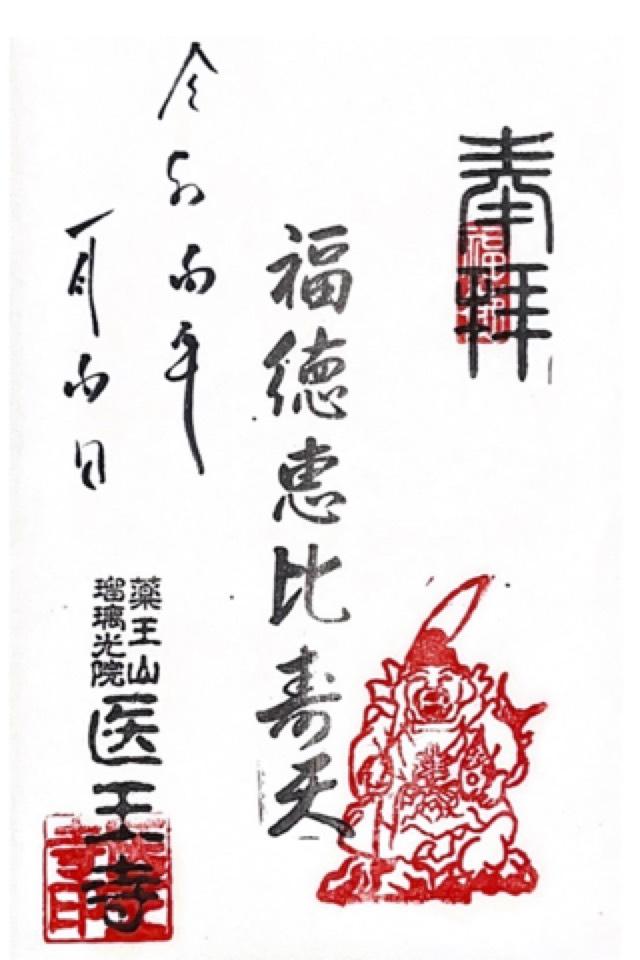 奉拝
福徳恵比寿天
令和四年
一月四日
薬王山
瑠璃光院
医王寺